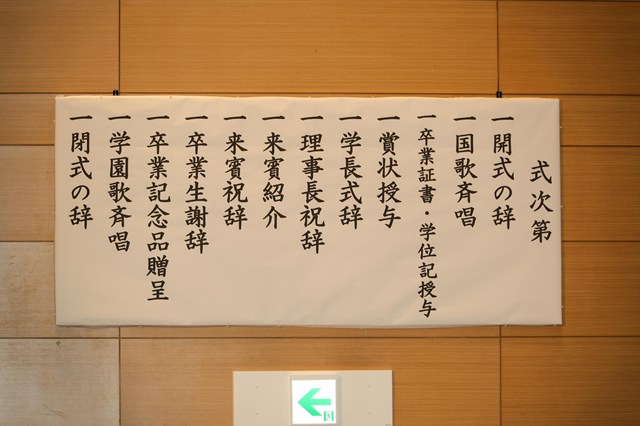 式次第
一開式の辞
一国歌斉唱
一卒業証書・学位記授与
一賞状授与
一学長式辞
一理事長祝辞
一来賓紹介
一来賓祝辞
一卒業生謝辞
一卒業記念品贈呈
一学園歌斉唱
一閉式の辞